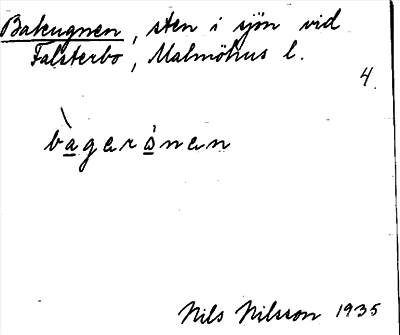 Bakugnen, sten i sjön vid
Falsterbo, Malmöhus l.
4.
bàgerånen
Nils Nilsson 1935